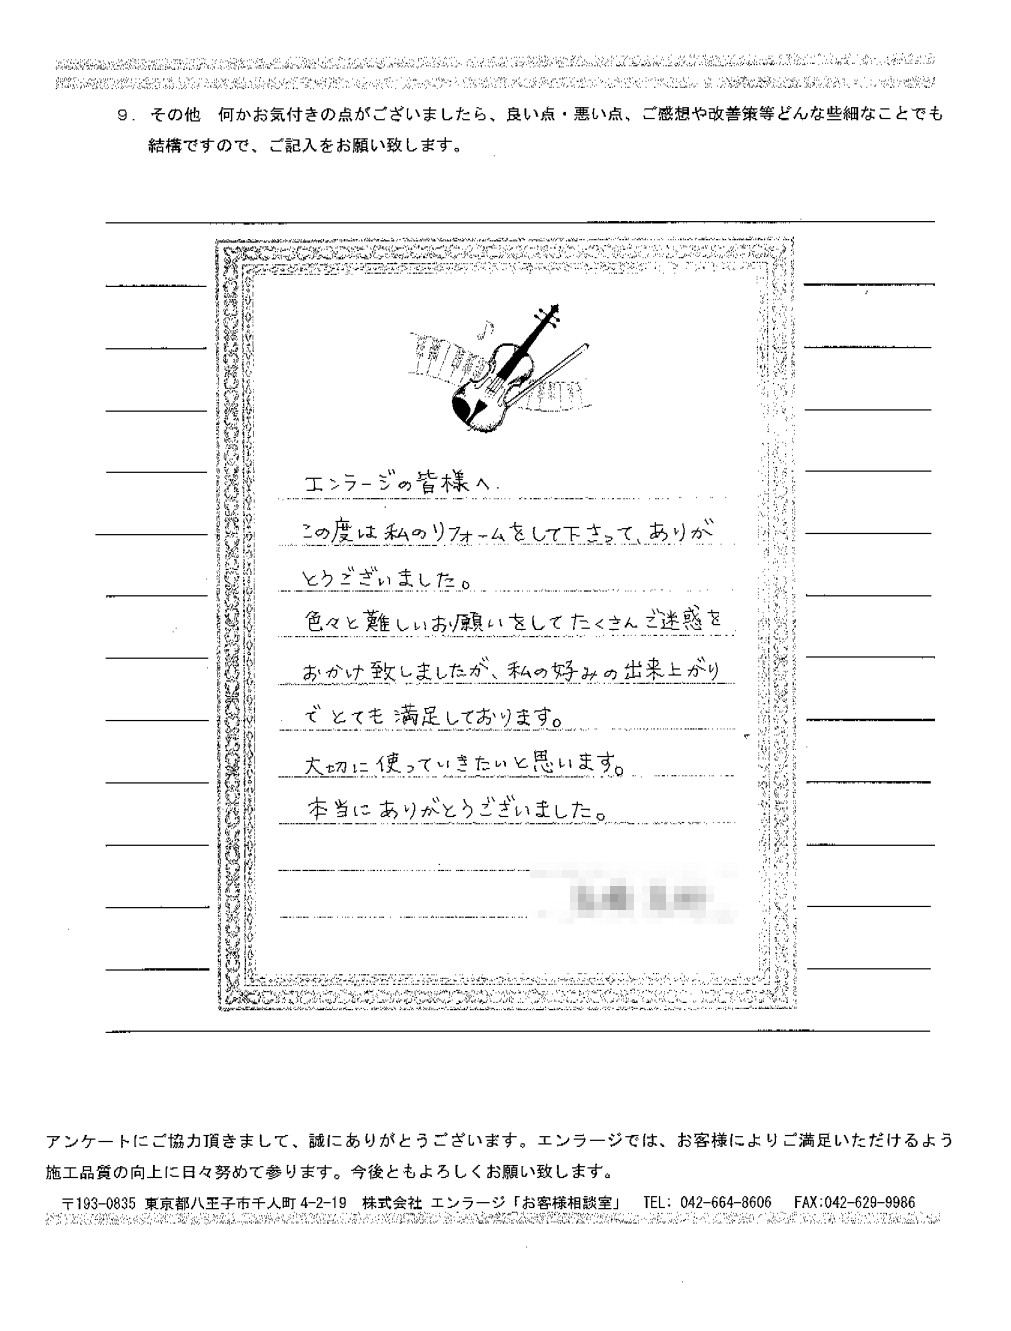 9. その他　何かお気付きの点がございましたら、良い点・悪い点、ご感想や改善策等どんな些細なことでも
結構ですので、ご記入をお願い致します。
エンラージの皆様へ.
この度は私のリフォームをして下さって、ありが
とうございました。
色々と難しいお願いをしてたくさんご迷惑を
おかけ致しましたが、私の好みの出来上がり
でとても満足しております。
大切に使っていきたいと思います。
本当にありがとうございました。
アンケートにご協力頂きまして、誠にありがとうございます。エンラージでは、お客様によりご満足いただけるよう
施工品質の向上に日々努めて参ります。今後ともよろしくお願い致します。
〒193-0835 東京都八王子市千人町 4-2-19　株式会社 エンラージ「お客様相談室」　TEL: 042-664-8606　FAX:042-629-9986